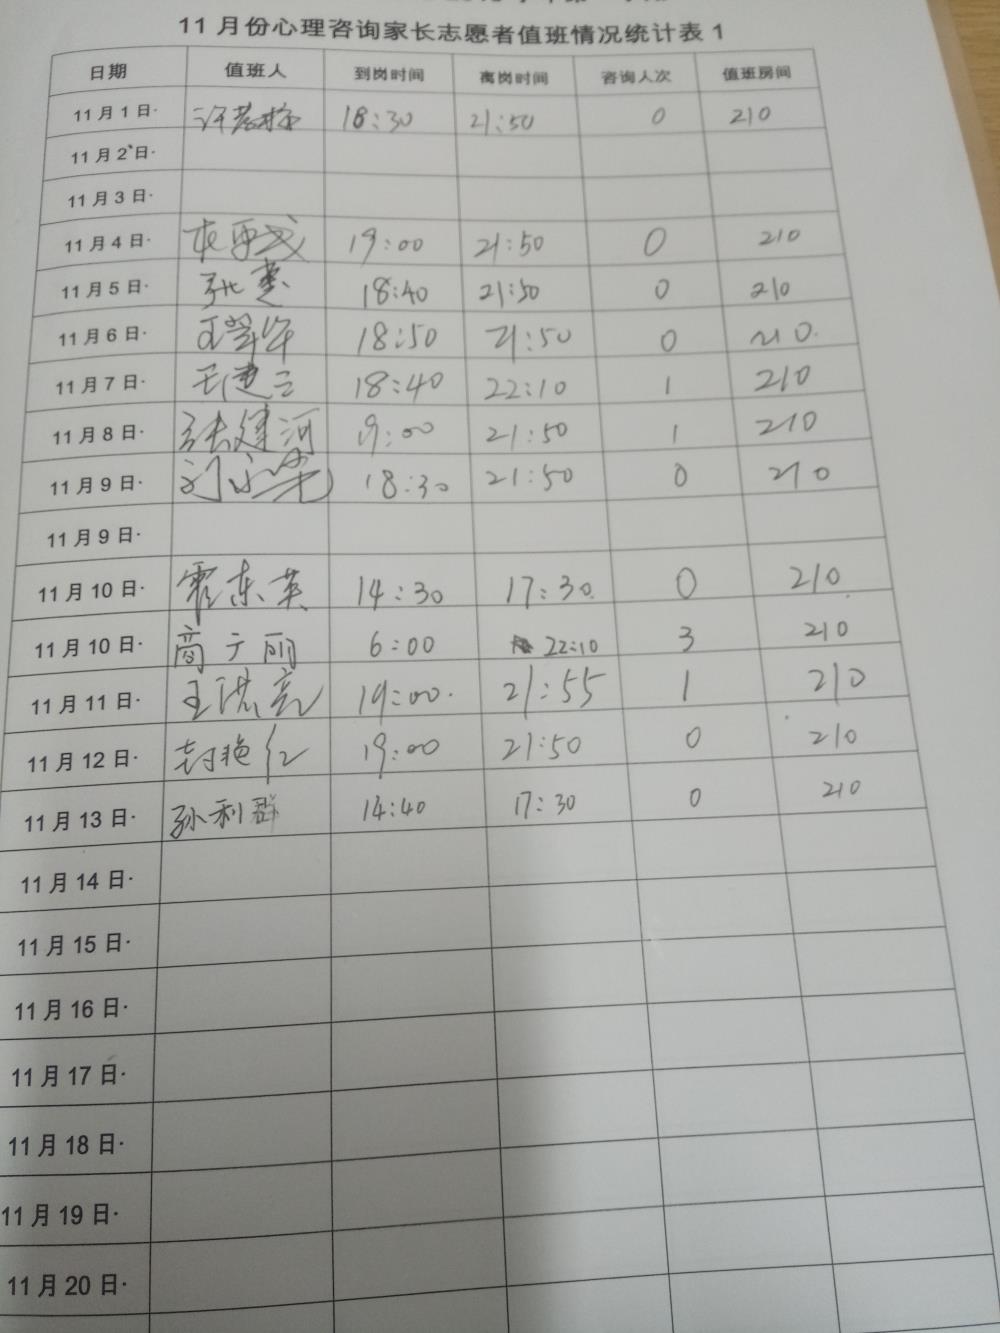 11月份心理咨询家长志愿者值班情况统计表1
日期 值班人 到岗时间 离岗时间 咨询人次 值班房间
11月1日· 18:30 21:50 0 210
11月2日·
11月3日·
11月4日· 19:00 21:50 0 210
11月5日· 张惠 18:40 21:50 0 210
11月6日· 18:50 21:50 0 210
11月7日· 18:40 22:10 1 210
11月8日· 张建河 19:00 21:50 1 210
11月9日· 18:30 21:50 0 210
11月9日·
11月10日· 霍东英 14:30 17:30 0 210
11月10日· 高于丽 6:00 22:10 3 210
11月11日· 王洪亮 19:00 21:55 1 210
11月12日· 封艳红 19:00 21:50 0 210
11月13日· 孙利群 14:40 17:30 0 210
11月14日·
11月15日·
11月16日·
11月17日·
11月18日·
11月19日·
11月20日·